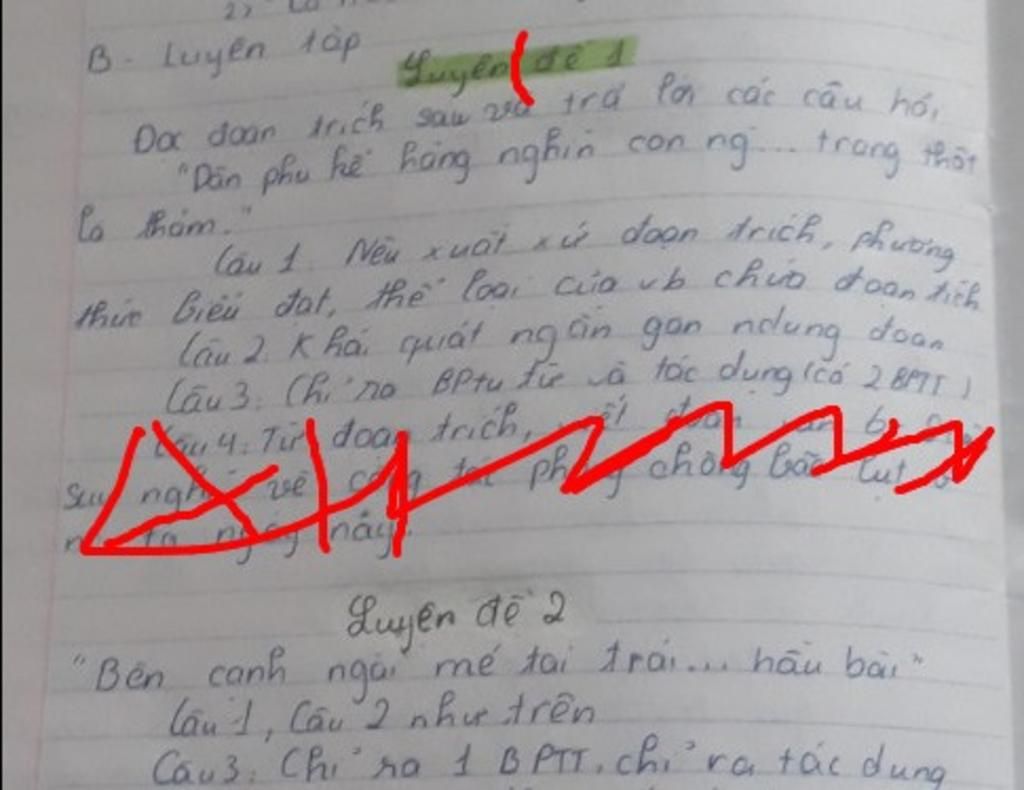 B. Luyện tập
Luyện đề 1
Đọc đoạn trích sau và trả lời các câu hỏi
"Dân phu kể hàng nghìn con ng... trong thật
là thảm."
Câu 1. Nêu xuất xứ đoạn trích, phương
thức biểu đạt, thể loại của vb chứa đoan tích
Câu 2. Khái quát ngắn gọn ndung đoạn
Câu 3: Chỉ ra BPtu từ và tác dụng (có 2 BPTT)
Câu 4: Từ đoạn trích, đoạn
suy nghĩ về công tác phòng chống bão lụt ở
ta ngày nay.
Luyện đề 2
"Bên cạnh ngài mé tai trái... hầu bài"
Câu 1, Câu 2 như trên
Câu 3: Chỉ ra 1 BPTT, chỉ ra tác dụng